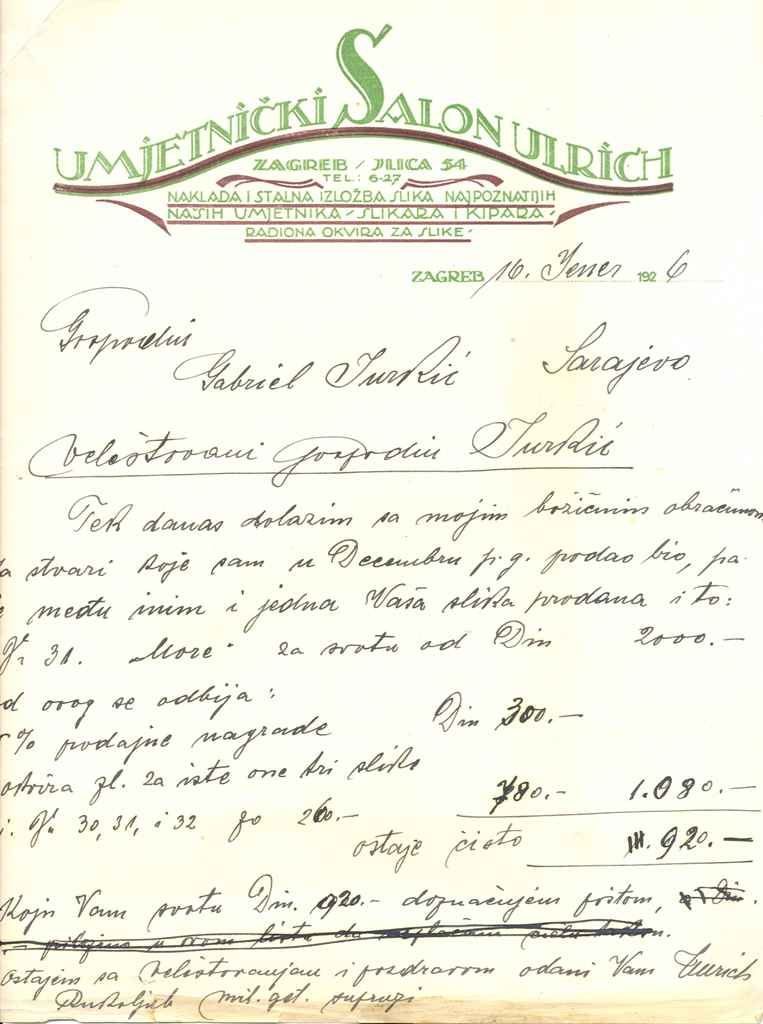 UMJETNIČKI SALON ULRICH
ZAGREB / ILICA 54
TEL: 6-27
NAKLADA I STALNA IZLOŽBA SLIKA NAJPOZNATIJIH
NAŠIH UMJETNIKA - SLIKARA I KIPARA -
RADIONA OKVIRA ZA SLIKE -
ZAGREB 16. Jener 1926
Gospodin
Gabriel Jurkić Sarajevo
Veleštovani gospodin Jurkić
Tek danas dolazim sa mojim božićnim obračunom
za stvari koje sam u Decembru p. g. podao bio, pa
među inim i jedna Vaša slika prodana i to:
Nr 31. „More" za svotu od Din 2000.—
od ovog se odbija:
% prodajne nagrade Din 300.—
okvira zl. za iste one tri slike
Nr 30, 31, i 32 po 260.— 780.— 1.080.—
ostaje čisto 920.—
Koju Vam svotu Din. 920.— doznačujem poštom,
Ostajem sa veleštovanjem i pozdravom odani Vam Ulrich
Rukoljub mil. gst. supruzi